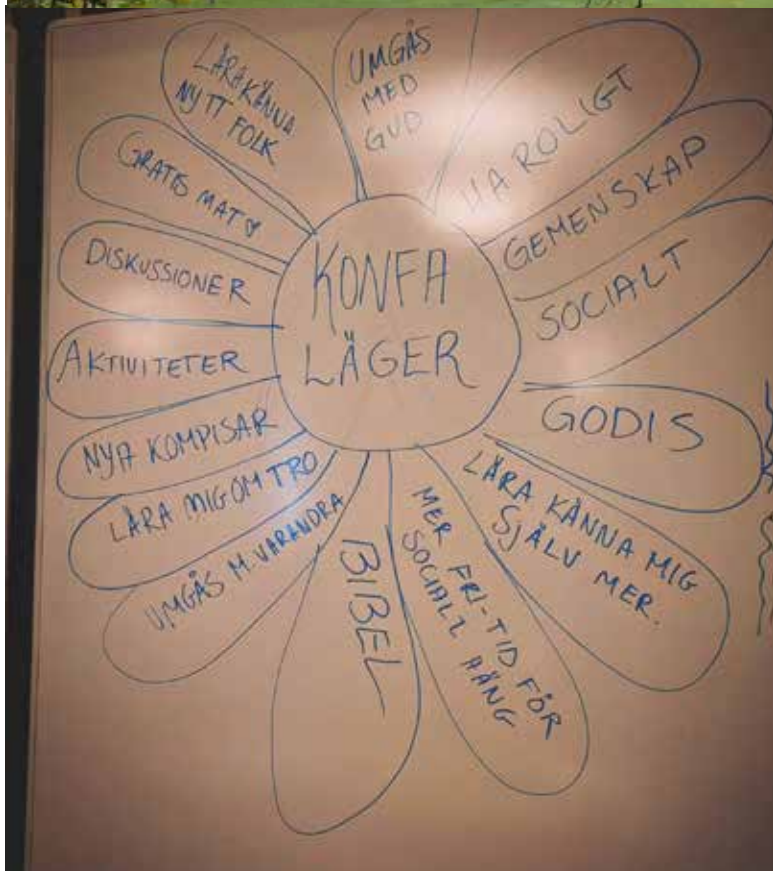 KONFA
LÄGER
UMGÅS
MED
GUD
HA ROLIGT
GEMENSKAP
SOCIALT
GODIS
LÄRA KÄNNA MIG
SJÄLV MER.
MER FRI-TID FÖR
SOCIALT HÄNG
BIBEL
UMGÅS M. VARANDRA
LÄRA MIG OM TRO
NYA KOMPISAR
AKTIVITETER
DISKUSSIONER
GRATIS MAT
LÄRA KÄNNA
NYTT FOLK